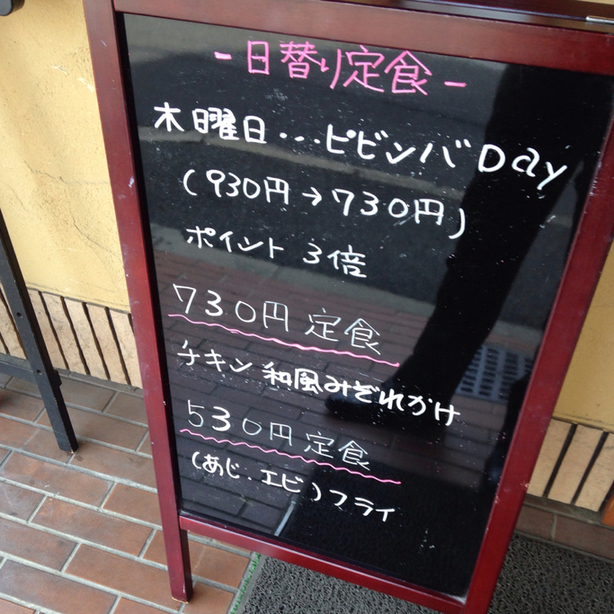 - 日替り定食 -
木曜日...ピビンバDay
(930円→730円)
ポイント 3倍
730円 定食
チキン 和風みぞれかけ
530円 定食
(あじ・エビ)フライ